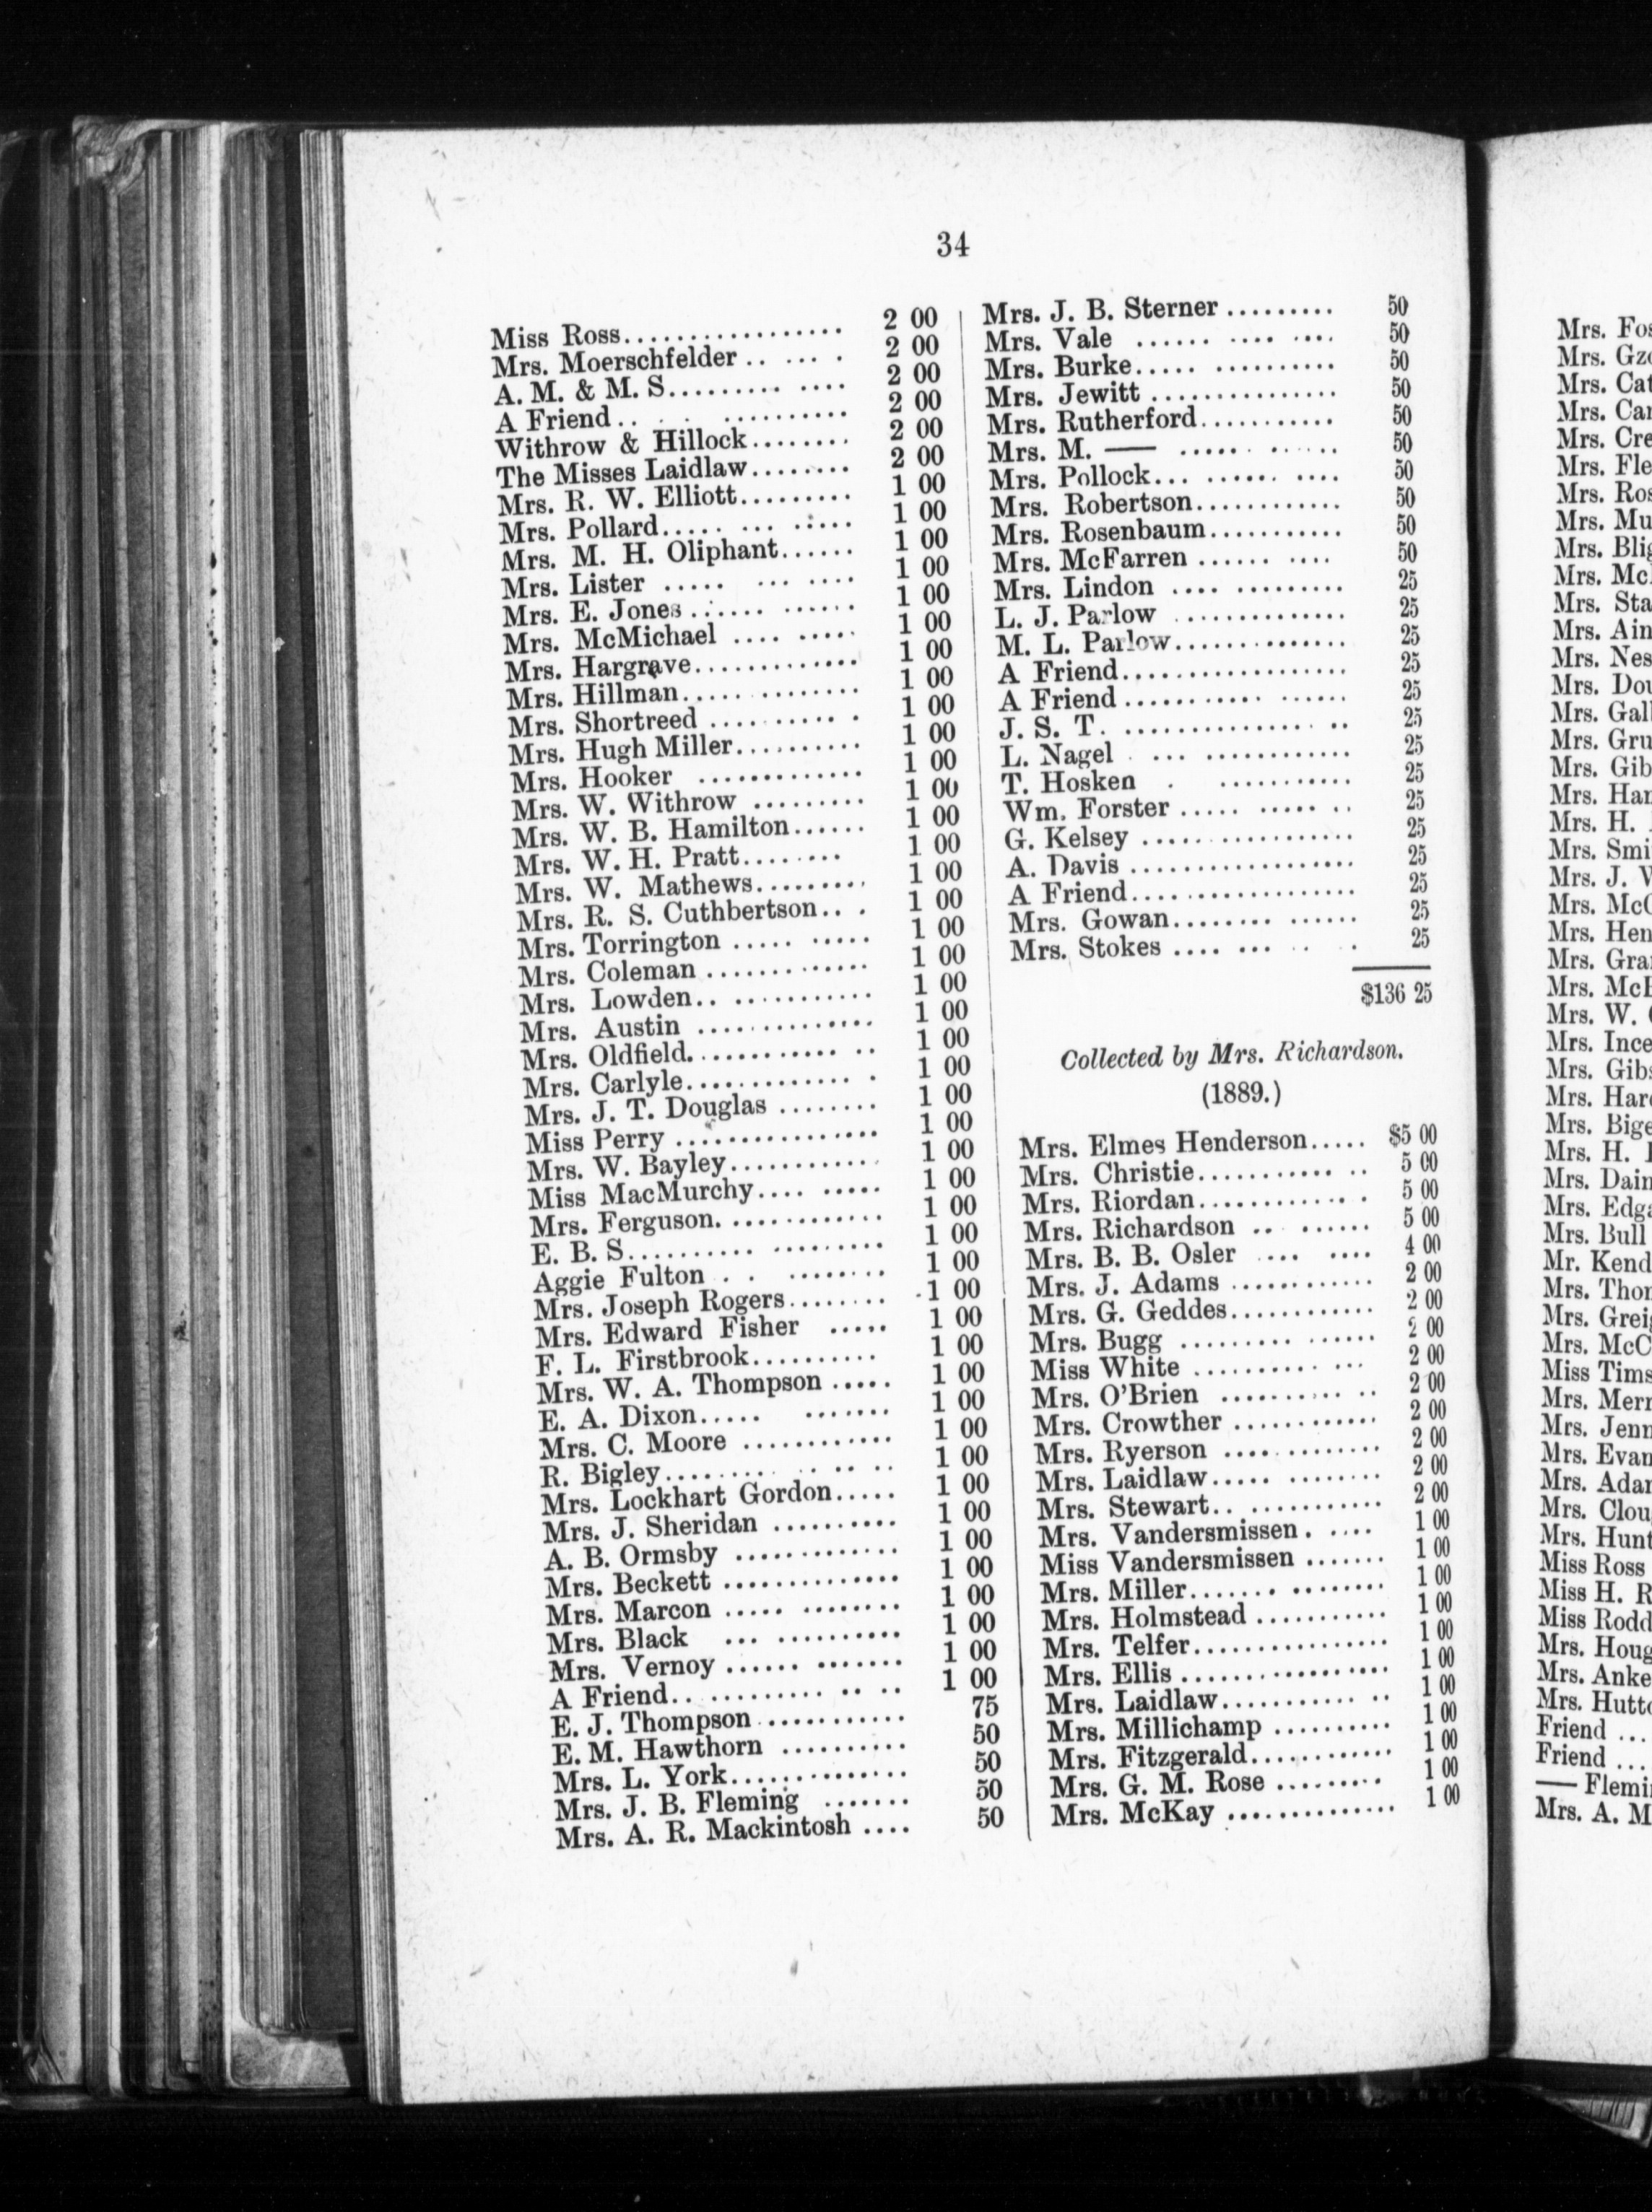 34
Miss Ross................. 2 00
Mrs. Moerschfelder .. ... . 2 00
A. M. & M. S............. 2 00
A Friend.. . .......... 2 00
Withrow & Hillock........ 2 00
The Misses Laidlaw........ 2 00
Mrs. R. W. Elliott......... 1 00
Mrs. Pollard..... ... ..... 1 00
Mrs. M. H. Oliphant...... 1 00
Mrs. Lister ..... ... .... 1 00
Mrs. E. Jones ...... ...... 1 00
Mrs. McMichael .... ..... 1 00
Mrs. Hargrave............. 1 00
Mrs. Hillman.............. 1 00
Mrs. Shortreed ........... . 1 00
Mrs. Hugh Miller.......... 1 00
Mrs. Hooker ............. 1 00
Mrs. W. Withrow ......... 1 00
Mrs. W. B. Hamilton...... 1 00
Mrs. W. H. Pratt........ 1 00
Mrs. W. Mathews......... 1 00
Mrs. R. S. Cuthbertson.. . 1 00
Mrs. Torrington ..... ..... 1 00
Mrs. Coleman ............. 1 00
Mrs. Lowden.. ........... 1 00
Mrs. Austin .............. 1 00
Mrs. Oldfield............ .. 1 00
Mrs. Carlyle............. . 1 00
Mrs. J. T. Douglas ........ 1 00
Miss Perry ................ 1 00
Mrs. W. Bayley............ 1 00
Miss MacMurchy.... ..... 1 00
Mrs. Ferguson............. 1 00
E. B. S.......... ......... 1 00
Aggie Fulton . . ........ 1 00
Mrs. Joseph Rogers........ 1 00
Mrs. Edward Fisher ..... 1 00
F. L. Firstbrook.......... 1 00
Mrs. W. A. Thompson ..... 1 00
E. A. Dixon..... ....... 1 00
Mrs. C. Moore ............ 1 00
R. Bigley......... .. .. .. 1 00
Mrs. Lockhart Gordon..... 1 00
Mrs. J. Sheridan .......... 1 00
A. B. Ormsby ............. 1 00
Mrs. Beckett .............. 1 00
Mrs. Marcon ..... ........ 1 00
Mrs. Black ... .......... 1 00
Mrs. Vernoy ...... ....... 1 00
A Friend.. .......... .. .. 1 00
E. J. Thompson ........... 75
E. M. Hawthorn .......... 50
Mrs. L. York.............. 50
Mrs. J. B. Fleming ....... 50
Mrs. A. R. Mackintosh .... 50
Mrs. J. B. Sterner ......... 50
Mrs. Vale ...... .... .... 50
Mrs. Burke..... .......... 50
Mrs. Jewitt ............... 50
Mrs. Rutherford........... 50
Mrs. M. —— ..... ...... 50
Mrs. Pollock... ...... .... 50
Mrs. Robertson............ 50
Mrs. Rosenbaum........... 50
Mrs. McFarren ...... .... 50
Mrs. Lindon .... ......... 25
L. J. Parlow .............. 25
M. L. Parlow.............. 25
A Friend................... 25
A Friend........... ...... 25
J. S. T. ............... .. 25
L. Nagel . ... ............ 25
T. Hosken . ........... 25
Wm. Forster ..... ..... .. 25
G. Kelsey ................. 25
A. Davis .................. 25
A Friend................... 25
Mrs. Gowan........ ...... 25
Mrs. Stokes .... ... .. . 25
$136 25
Collected by Mrs. Richardson.
(1889.)
Mrs. Elmes Henderson..... $5 00
Mrs. Christie........... .. 5 00
Mrs. Riordan............ . 5 00
Mrs. Richardson .. ...... 5 00
Mrs. B. B. Osler .... .... 4 00
Mrs. J. Adams ............ 2 00
Mrs. G. Geddes............ 2 00
Mrs. Bugg ......... ...... 2 00
Miss White .......... ... 2 00
Mrs. O'Brien .......... .. 2 00
Mrs. Crowther ............ 2 00
Mrs. Ryerson ............. 2 00
Mrs. Laidlaw..... ........ 2 00
Mrs. Stewart.. ........... 2 00
Mrs. Vandersmissen. .... 1 00
Miss Vandersmissen ....... 1 00
Mrs. Miller....... ........ 1 00
Mrs. Holmstead ........... 1 00
Mrs. Telfer................ 1 00
Mrs. Ellis ................. 1 00
Mrs. Laidlaw........... .. 1 00
Mrs. Millichamp .......... 1 00
Mrs. Fitzgerald............ 1 00
Mrs. G. M. Rose ......... 1 00
Mrs. McKay .............. 1 00
Mrs. Fos
Mrs. Gzo
Mrs. Cat
Mrs. Car
Mrs. Cre
Mrs. Fle
Mrs. Ros
Mrs. Mu
Mrs. Blig
Mrs. Mc
Mrs. Sta
Mrs. Ain
Mrs. Nes
Mrs. Dou
Mrs. Gall
Mrs. Gru
Mrs. Gib
Mrs. Har
Mrs. H.
Mrs. Smi
Mrs. J.
Mrs. McC
Mrs. Hen
Mrs. Gra
Mrs. Mc
Mrs. W.
Mrs. Ince
Mrs. Gibs
Mrs. Har
Mrs. Bige
Mrs. H.
Mrs. Dain
Mrs. Edga
Mrs. Bull
Mr. Kend
Mrs. Thor
Mrs. Greig
Mrs. McC
Miss Tims
Mrs. Merr
Mrs. Jenn
Mrs. Evan
Mrs. Adar
Mrs. Clou
Mrs. Hunt
Miss Ross
Miss H. R
Miss Rodd
Mrs. Houg
Mrs. Anke
Mrs. Hutto
Friend ...
Friend ...
—— Flemi
Mrs. A. M